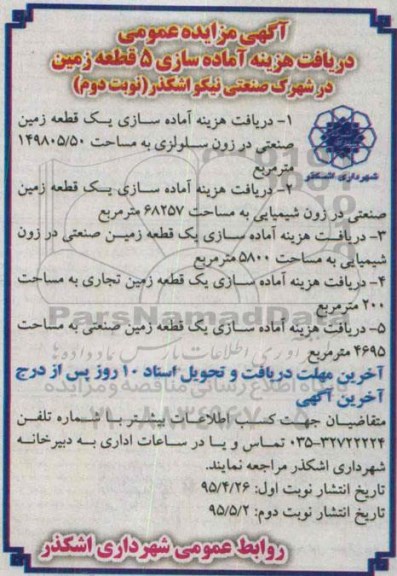 آگهی مزایده عمومی
دریافت هزینه آماده سازی ۵ قطعه زمین
در شهرک صنعتی نیکو اشکذر (نوبت دوم)
شهرداری اشکذر
۱- دریافت هزینه آماده سازی یک قطعه زمین
صنعتی در زون سلولزی به مساحت ۱۴۹۸۰۵/۵۰
مترمربع
۲- دریافت هزینه آماده سازی یک قطعه زمین
صنعتی در زون شیمیایی به مساحت ۶۸۲۵۷ مترمربع
۳- دریافت هزینه آماده سازی یک قطعه زمین صنعتی در زون
شیمیایی به مساحت ۵۸۰۰ مترمربع
۴- دریافت هزینه آماده سازی یک قطعه زمین تجاری به مساحت
۲۰۰ مترمربع
۵- دریافت هزینه آماده سازی یک قطعه زمین صنعتی به مساحت
۴۶۹۵ مترمربع
ParsNamadData
آخرین مهلت دریافت و تحویل اسناد ۱۰ روز پس از درج
آخرین آگهی
متقاضیان جهت کسب اطلاعات بیشتر با شماره تلفن
۰۳۵-۳۲۷۲۲۲۲۴ تماس و یا در ساعات اداری به دبیرخانه
شهرداری اشکذر مراجعه نمایند.
تاریخ انتشار نوبت اول: ۹۵/۴/۲۶
تاریخ انتشار نوبت دوم: ۹۵/۵/۲
روابط عمومی شهرداری اشکذر